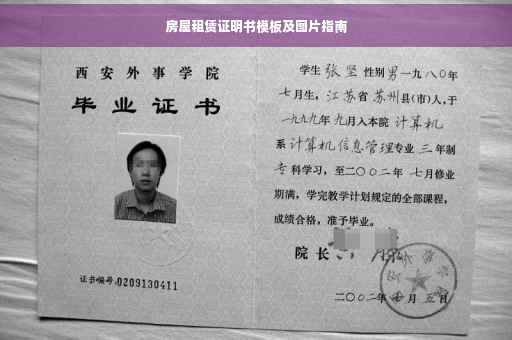 房屋租赁证明书模板及图片指南
西安外事学院
毕业证书
证书编号:0209130411
学生 张坚 性别 男 一九八〇年
七月生，江苏省 苏州县(市)人,于
一九九九年 九月入本院 计算机
系 计算机信息管理专业 三 年制
专科学习，至二〇〇二年 七月修业
期满，学完教学计划规定的全部课程，
成绩合格，准予毕业。
院长
二〇〇二年 月 五日